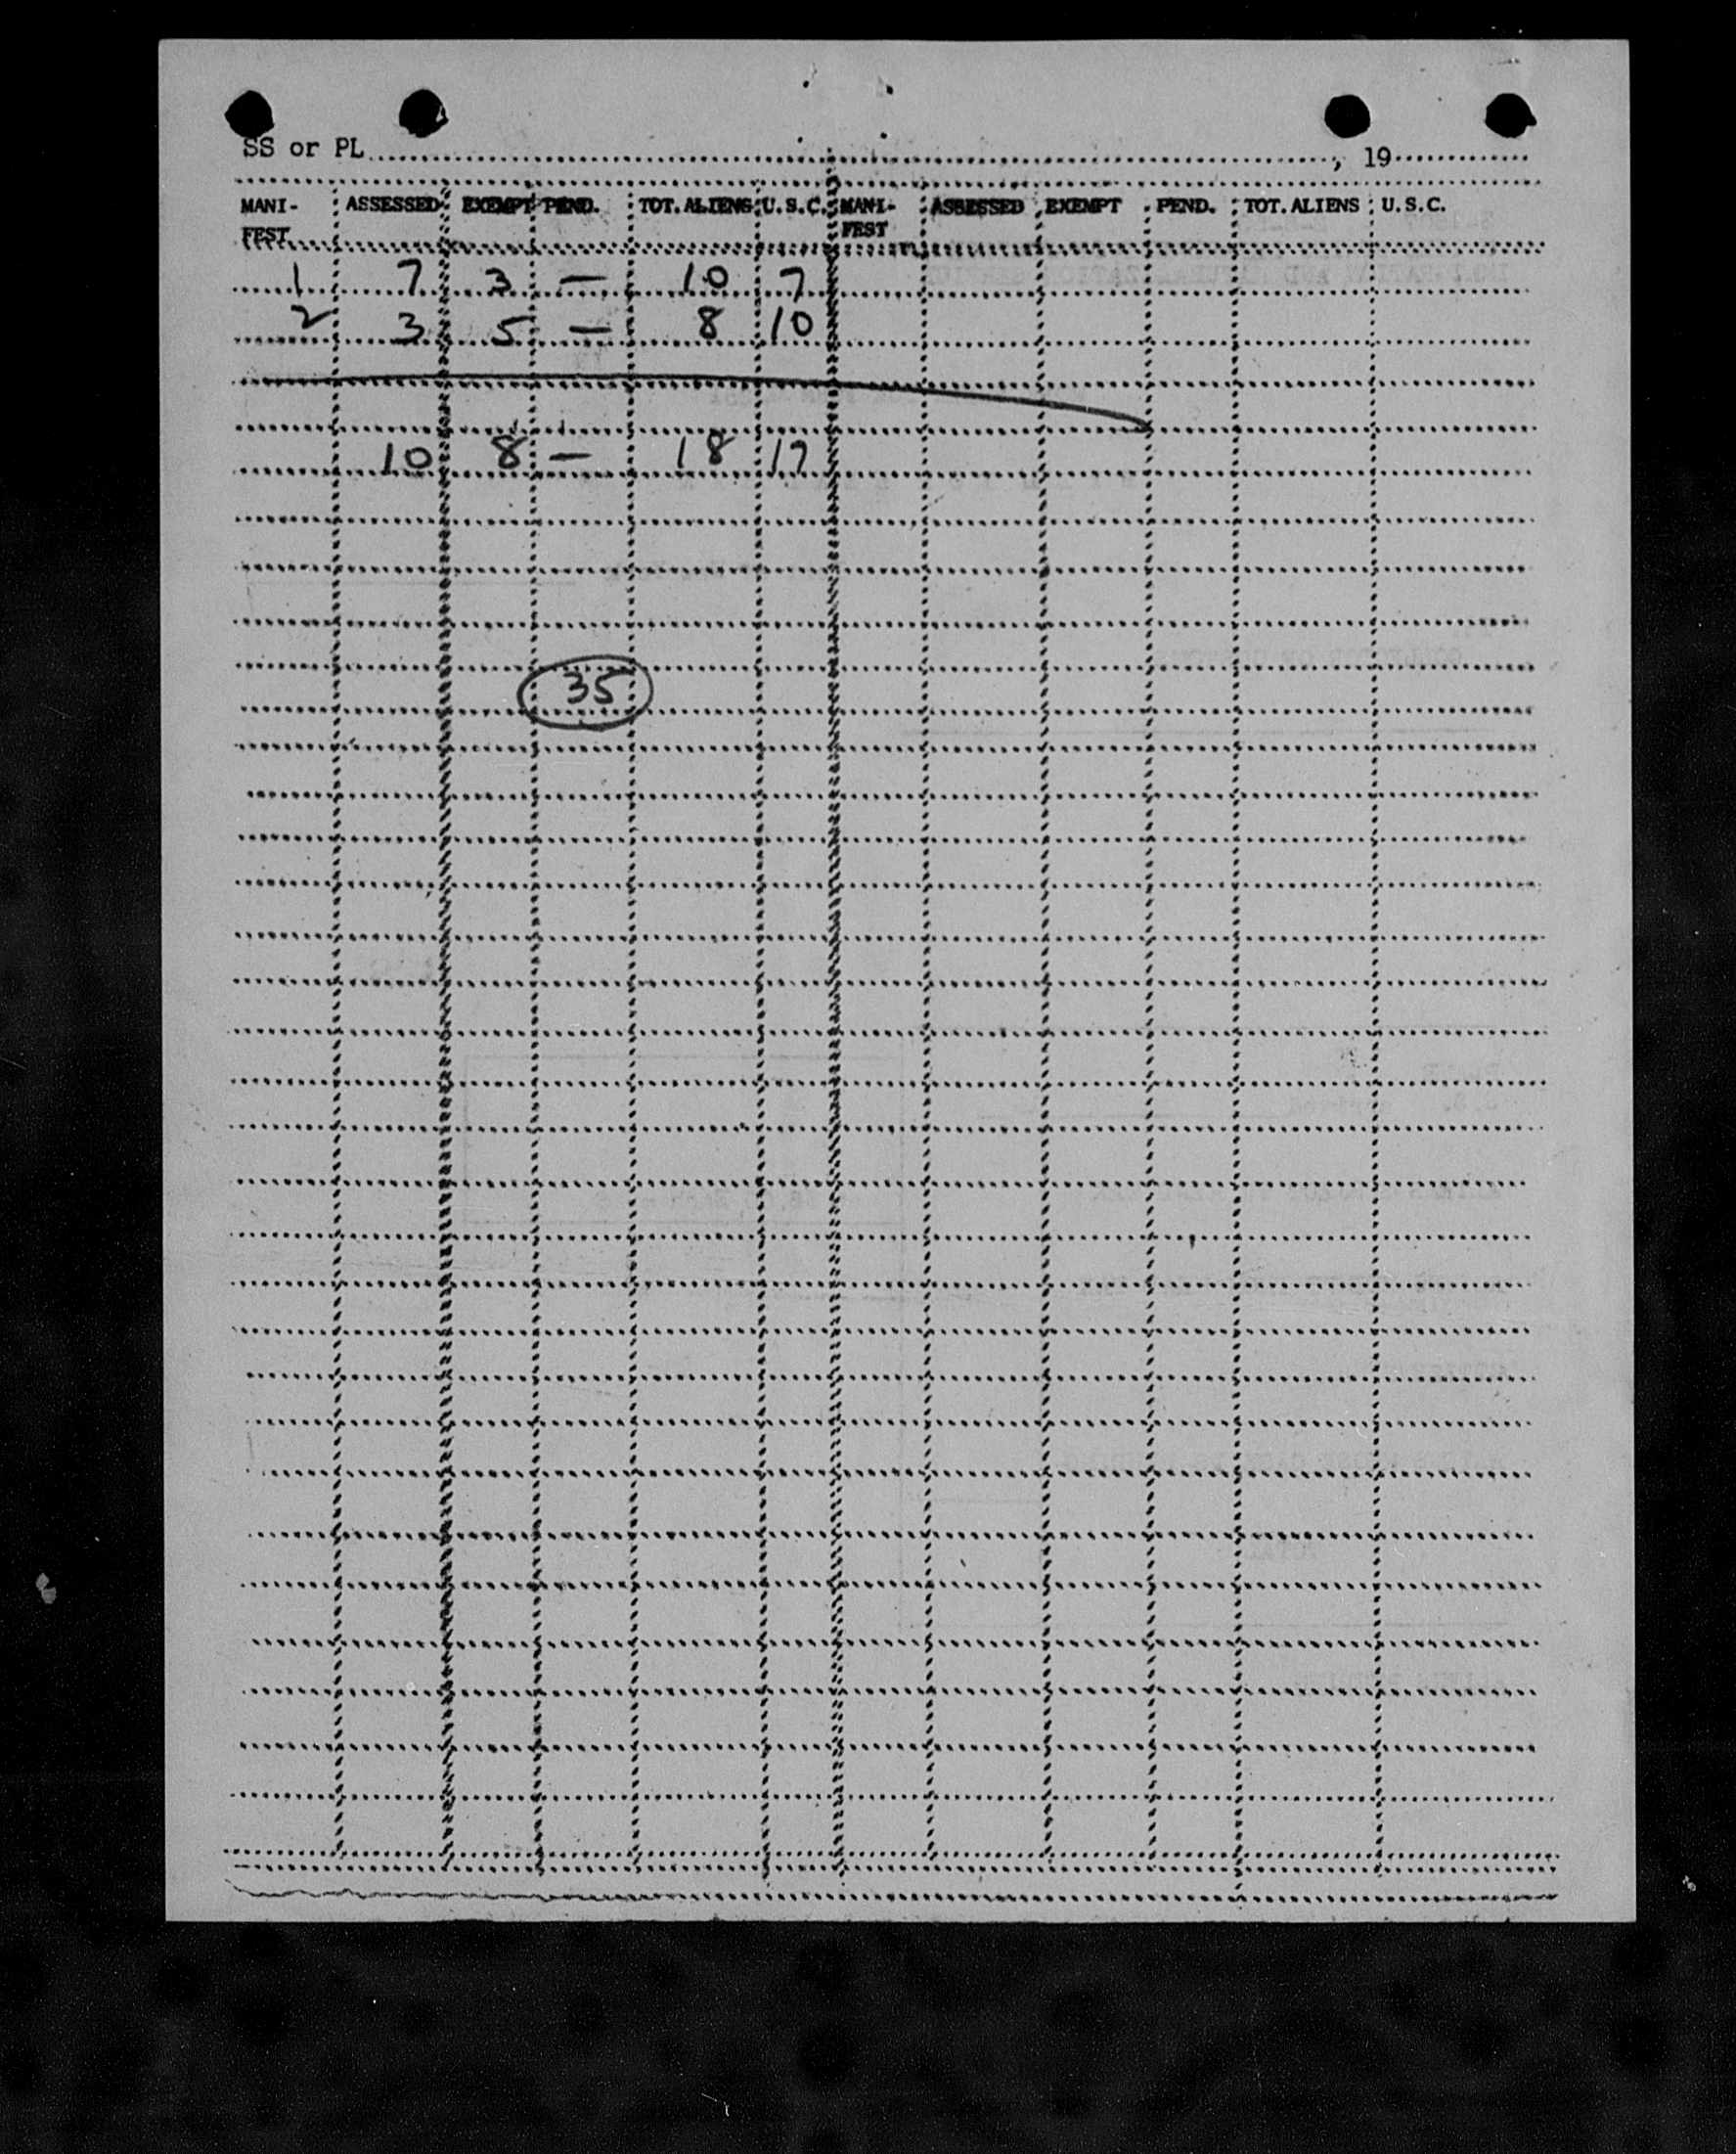 SS or PL, 19
MANI-FEST ASSESSED EXEMPT PEND. TOT. ALIENS U.S.C. MANI-FEST ASSESSED EXEMPT PEND. TOT. ALIENS U.S.C.
1 7 3 — 10 7
2 3 5 — 8 10
10 8 — 18 17
35